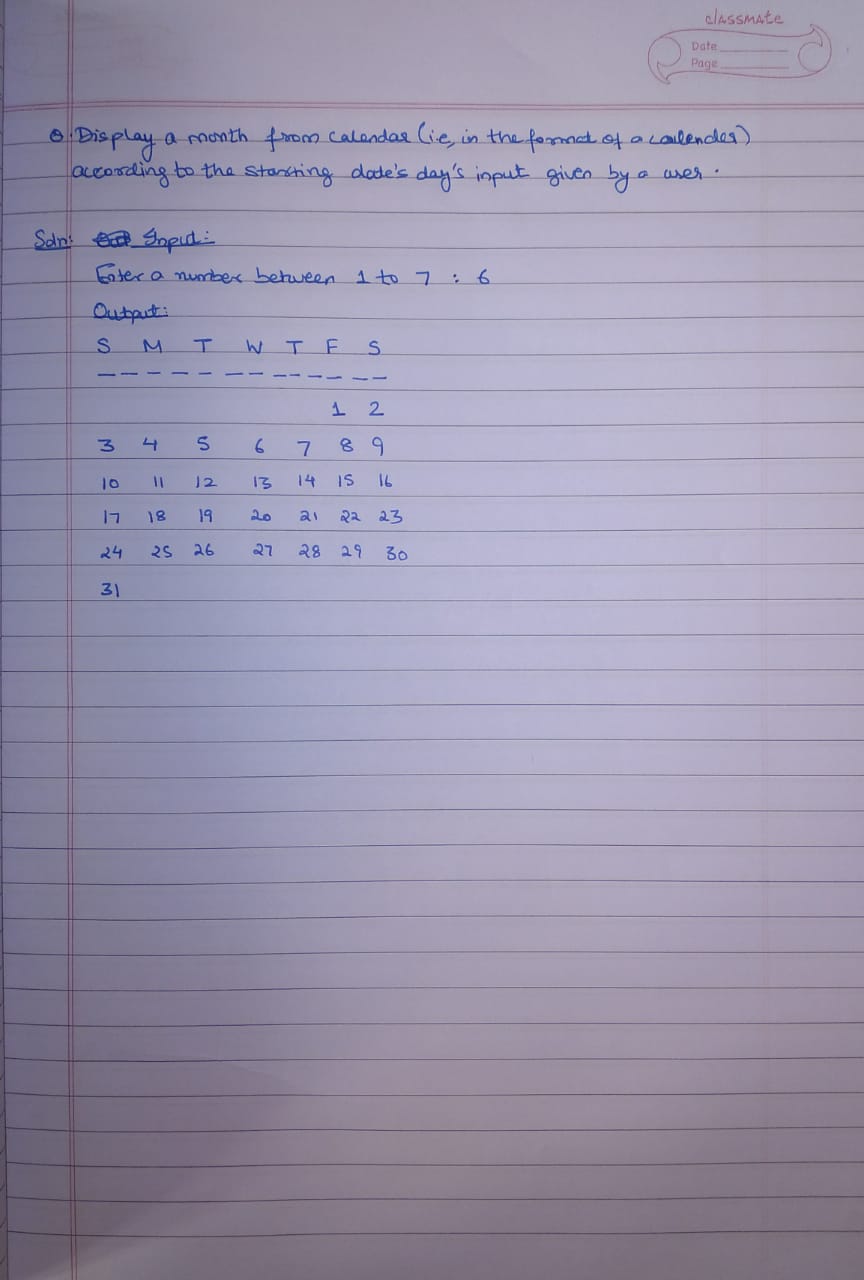 classmate
Date
Page
Q. Display a month from calendar (i.e, in the format of a calender)
according to the starting date's day's input given by a user.
Soln: Input:
Enter a number between 1 to 7 : 6
Output:
S M T W T F S
1 2
3 4 5 6 7 8 9
10 11 12 13 14 15 16
17 18 19 20 21 22 23
24 25 26 27 28 29 30
31